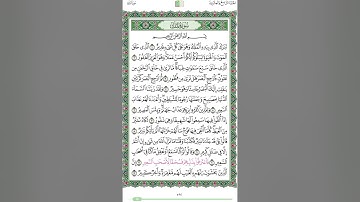 سُورَةُ الْمُلْكِ
بِسْمِ اللَّهِ الرَّحْمَٰنِ الرَّحِيمِ
تَبَارَكَ الَّذِي بِيَدِهِ الْمُلْكُ وَهُوَ عَلَىٰ كُلِّ شَيْءٍ قَدِيرٌ ١ الَّذِي خَلَقَ
الْمَوْتَ وَالْحَيَاةَ لِيَبْلُوَكُمْ أَيُّكُمْ أَحْسَنُ عَمَلًا وَهُوَ الْعَزِيزُ الْغَفُورُ ٢
الَّذِي خَلَقَ سَبْعَ سَمَاوَاتٍ طِبَاقًا مَّا تَرَىٰ فِي خَلْقِ الرَّحْمَٰنِ مِن
تَفَاوُتٍ فَارْجِعِ الْبَصَرَ هَلْ تَرَىٰ مِن فُطُورٍ ٣ ثُمَّ ارْجِعِ الْبَصَرَ كَرَّتَيْنِ
يَنقَلِبْ إِلَيْكَ الْبَصَرُ خَاسِئًا وَهُوَ حَسِيرٌ ٤ وَلَقَدْ زَيَّنَّا السَّمَاءَ
الدُّنْيَا بِمَصَابِيحَ وَجَعَلْنَاهَا رُجُومًا لِّلشَّيَاطِينِ وَأَعْتَدْنَا لَهُمْ عَذَابَ
السَّعِيرِ ٥ وَلِلَّذِينَ كَفَرُوا بِرَبِّهِمْ عَذَابُ جَهَنَّمَ وَبِئْسَ الْمَصِيرُ ٦
إِذَا أُلْقُوا فِيهَا سَمِعُوا لَهَا شَهِيقًا وَهِيَ تَفُورُ ٧ تَكَادُ تَمَيَّزُ
مِنَ الْغَيْظِ كُلَّمَا أُلْقِيَ فِيهَا فَوْجٌ سَأَلَهُمْ خَزَنَتُهَا أَلَمْ يَأْتِكُمْ نَذِيرٌ ٨
قَالُوا بَلَىٰ قَدْ جَاءَنَا نَذِيرٌ فَكَذَّبْنَا وَقُلْنَا مَا نَزَّلَ اللَّهُ مِن شَيْءٍ إِنْ أَنتُمْ
إِلَّا فِي ضَلَالٍ كَبِيرٍ ٩ وَقَالُوا لَوْ كُنَّا نَسْمَعُ أَوْ نَعْقِلُ مَا كُنَّا فِي أَصْحَابِ
السَّعِيرِ ١٠ فَاعْتَرَفُوا بِذَنبِهِمْ فَسُحْقًا لِّأَصْحَابِ السَّعِيرِ ١١
إِنَّ الَّذِينَ يَخْشَوْنَ رَبَّهُم بِالْغَيْبِ لَهُم مَّغْفِرَةٌ وَأَجْرٌ كَبِيرٌ ١٢